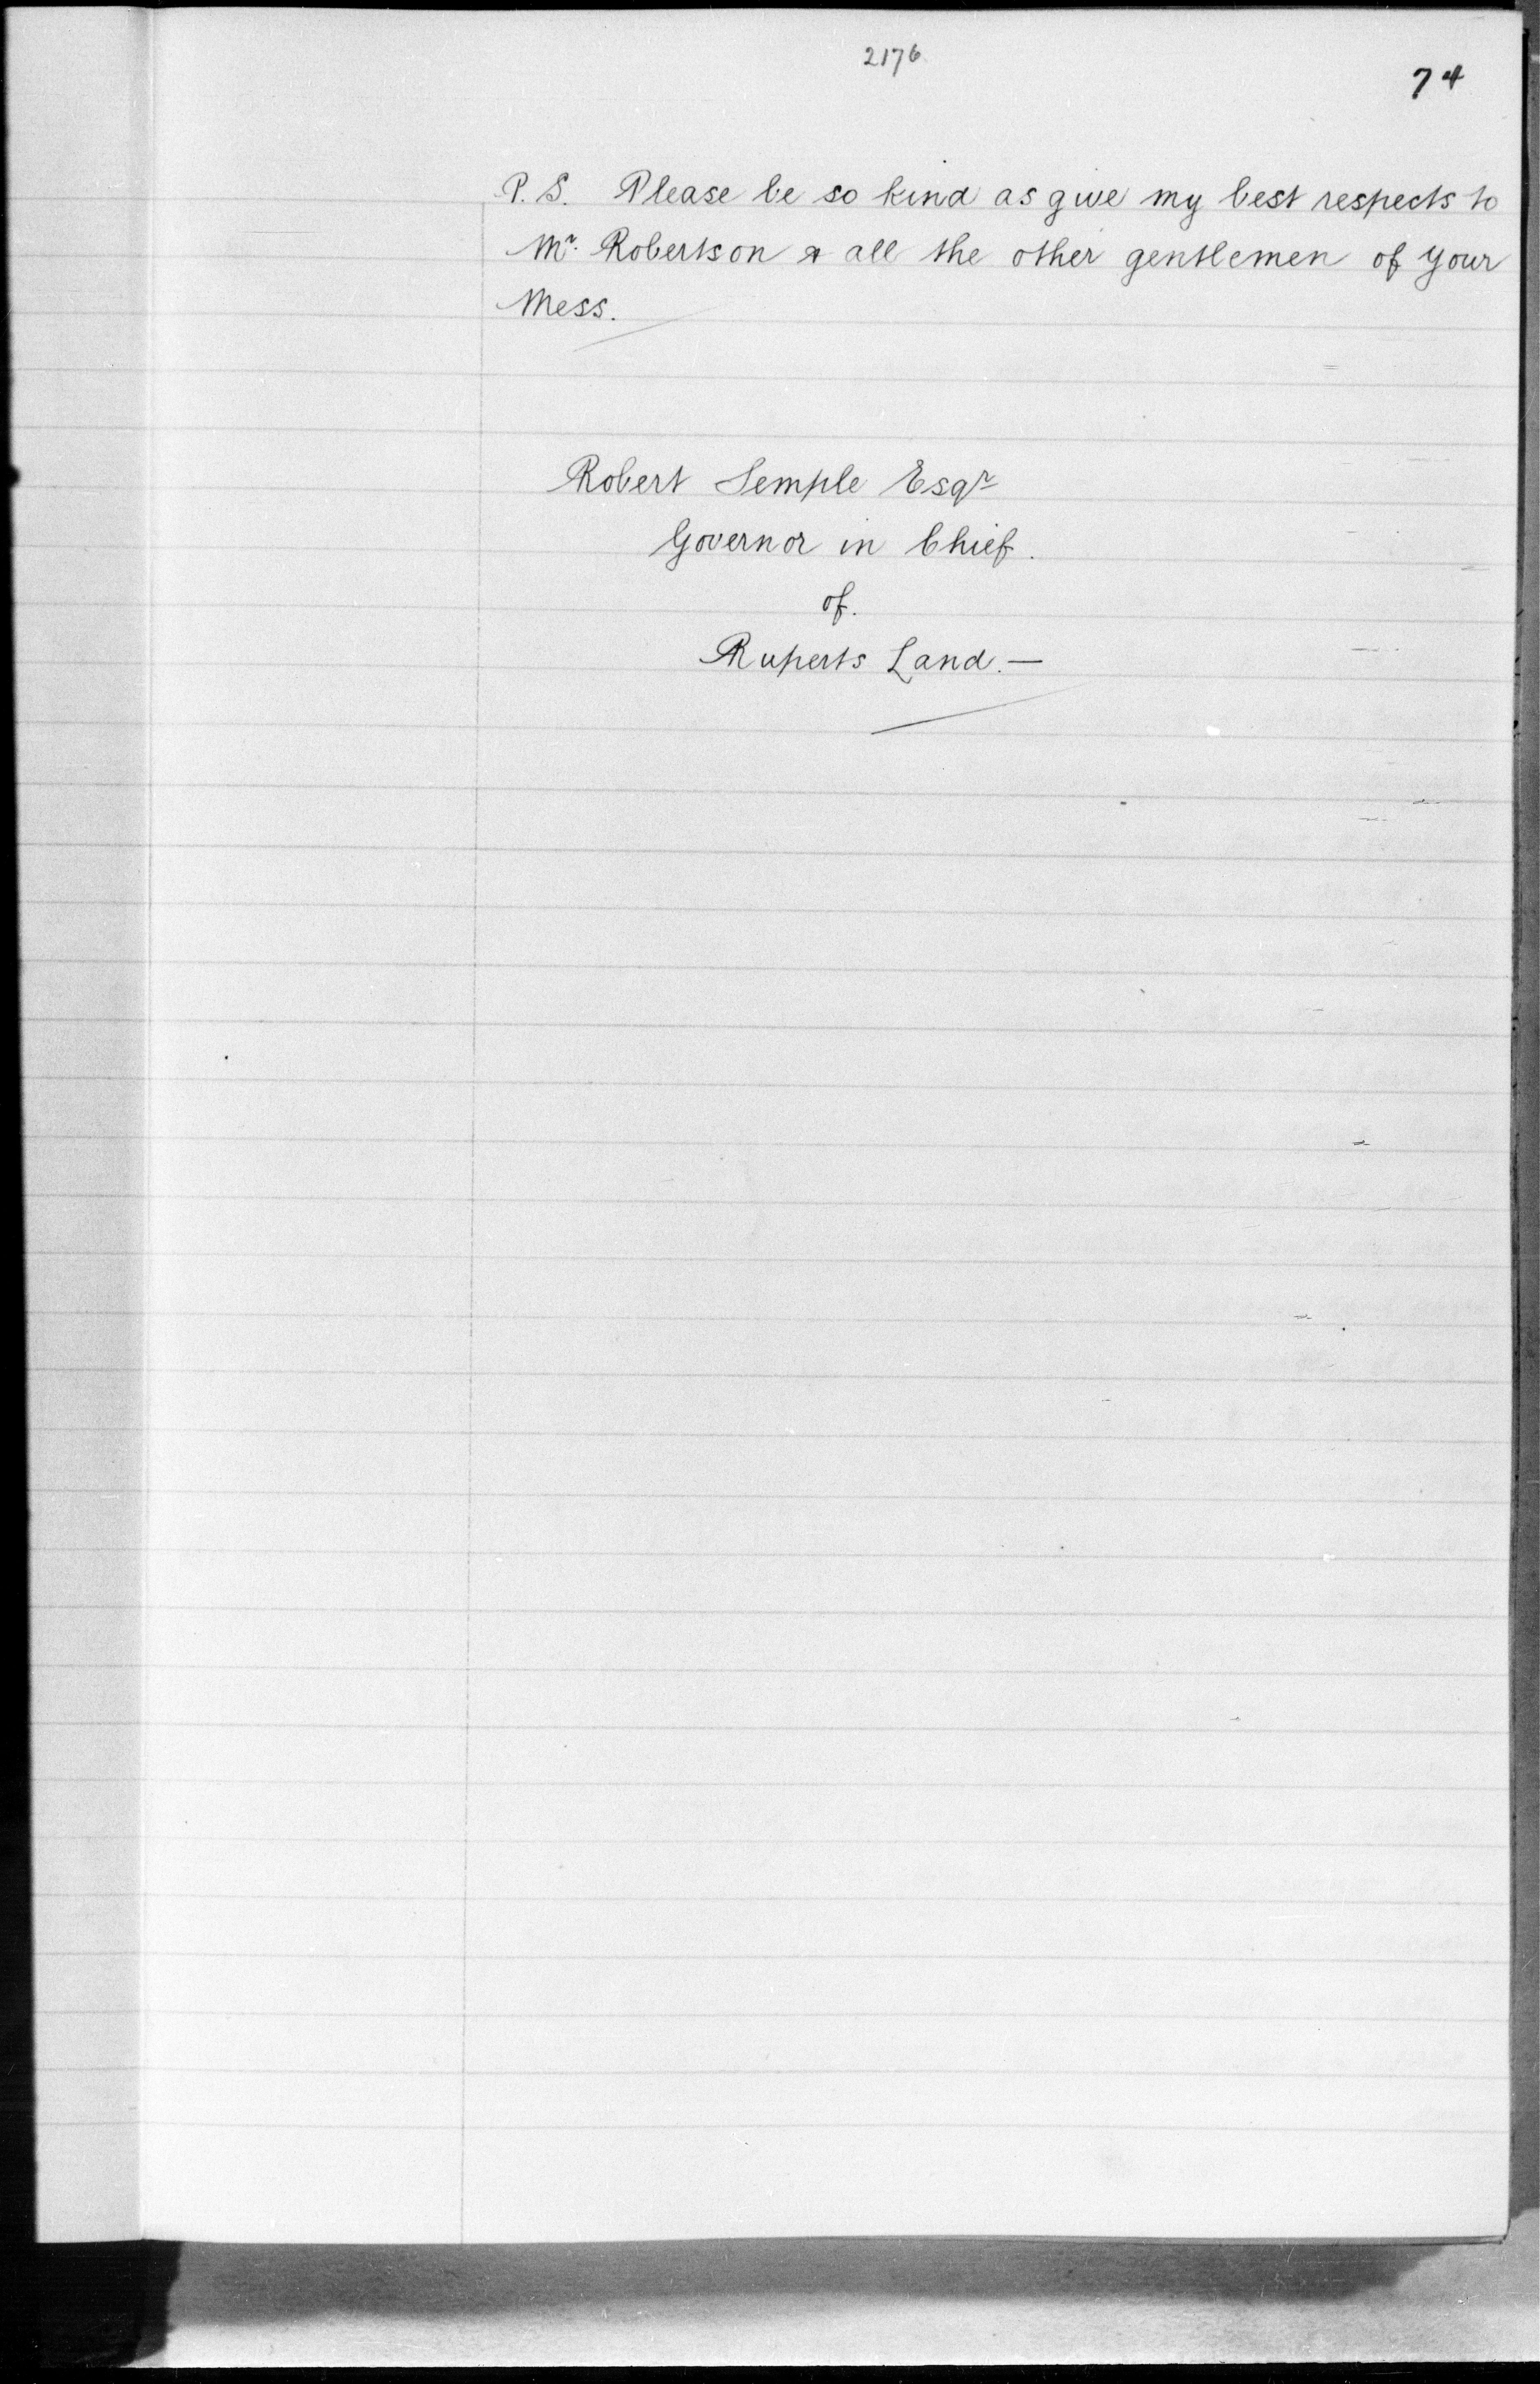 2176
74
P.S. Please be so kind as give my best respects to
Mr. Robertson & all the other gentlemen of your
Mess.
Robert Semple Esqr
Governor in Chief.
of.
Ruperts Land.—